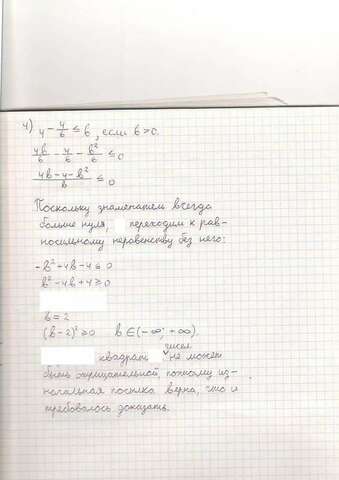 4) 4 - 4/b ≤ b, если b > 0.
4b/b - 4/b - b²/b ≤ 0
(4b - 4 - b²)/b ≤ 0
Поскольку знаменатель всегда
больше нуля, переходим к рав-
носильному неравенству без него:
-b² + 4b - 4 ≤ 0
b² - 4b + 4 ≥ 0
b = 2
(b - 2)² ≥ 0 b ∈ (-∞; +∞).
квадрат чисел не может
быть отрицательной, поэтому из-
начальная посылка верна, что и
требовалось доказать.